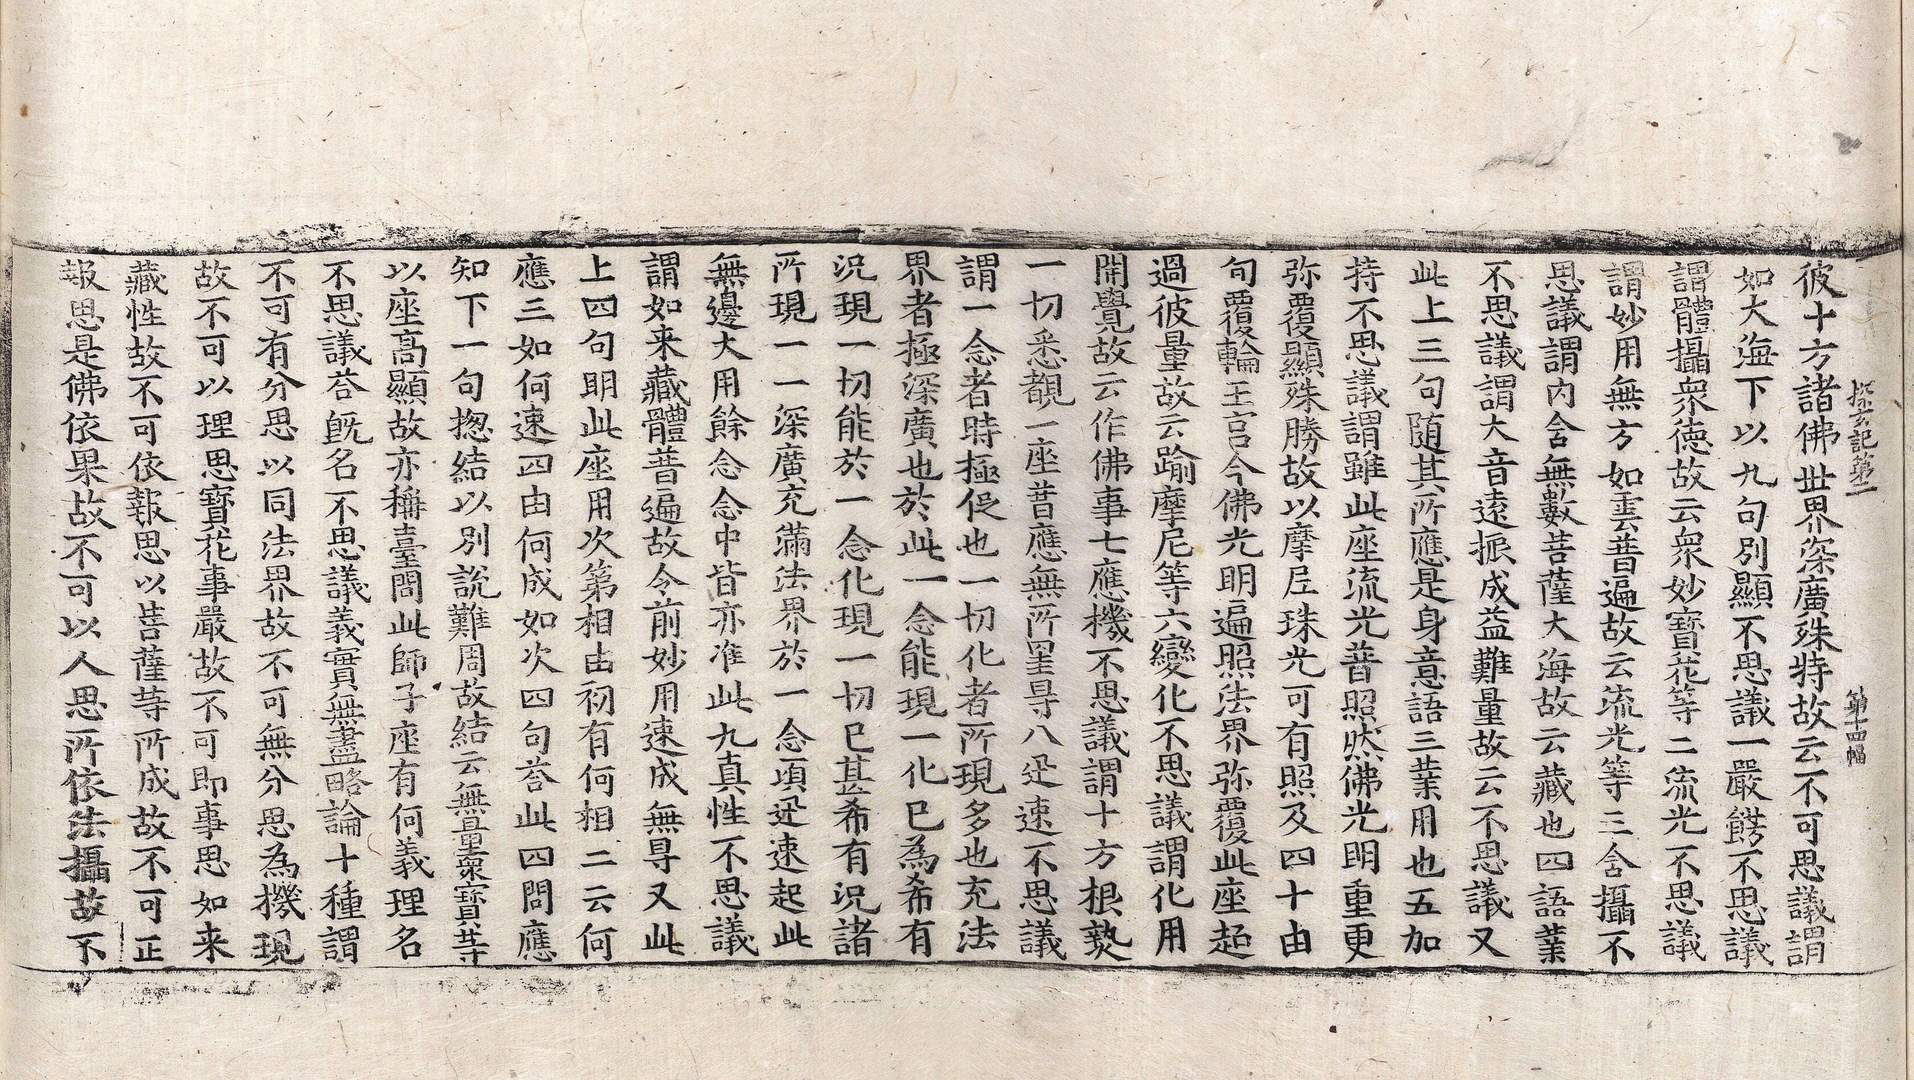 探玄記第一　第十四幅
彼十方諸佛世界深廣殊特故云不可思議謂
如大海下以九句別顯不思議一嚴餝不思議
謂體攝衆德故云衆妙寶花等二流光不思議
謂妙用無方如雲普遍故云流光等三含攝不
思議謂內含無數菩薩大海故云藏也四語業
不思議謂大音遠振成益難量故云不思議又
此上三句隨其所應是身意語三業用也五加
持不思議謂雖此座流光普照然佛光明重更
弥覆顯殊勝故以摩尼珠光可有照及四十由
句覆輪王宮今佛光明遍照法界弥覆此座起
過彼量故云踰摩尼等六變化不思議謂化用
開覺故云作佛事七應機不思議謂十方根𤍠
一切悉覩一座普應無所罣㝵八迅速不思議
謂一念者時極促也一切化者所現多也充法
界者極深廣也於此一念能現一化已為希有
況現一切能於一念化現一切已甚希有況諸
所現一一深廣充滿法界於一念項迅速起此
無邊大用餘念念中皆亦准此九真性不思議
謂如来藏體普遍故令前妙用速成無㝵又此
上四句明此座用次第相由初有何相二云何
應三如何速四由何成如次四句荅此四問應
知下一句揔結以別說難周故結云無量衆寶等
以座高顯故亦稱臺問此師子座有何義理名
不思議荅旣名不思議義實無盡略論十種謂
不可有分思以同法界故不可無分思為機現
故不可以理思寶花事嚴故不可即事思如来
藏性故不可依報思以菩薩等所成故不可正
報思是佛依果故不可以人思所依法攝故不